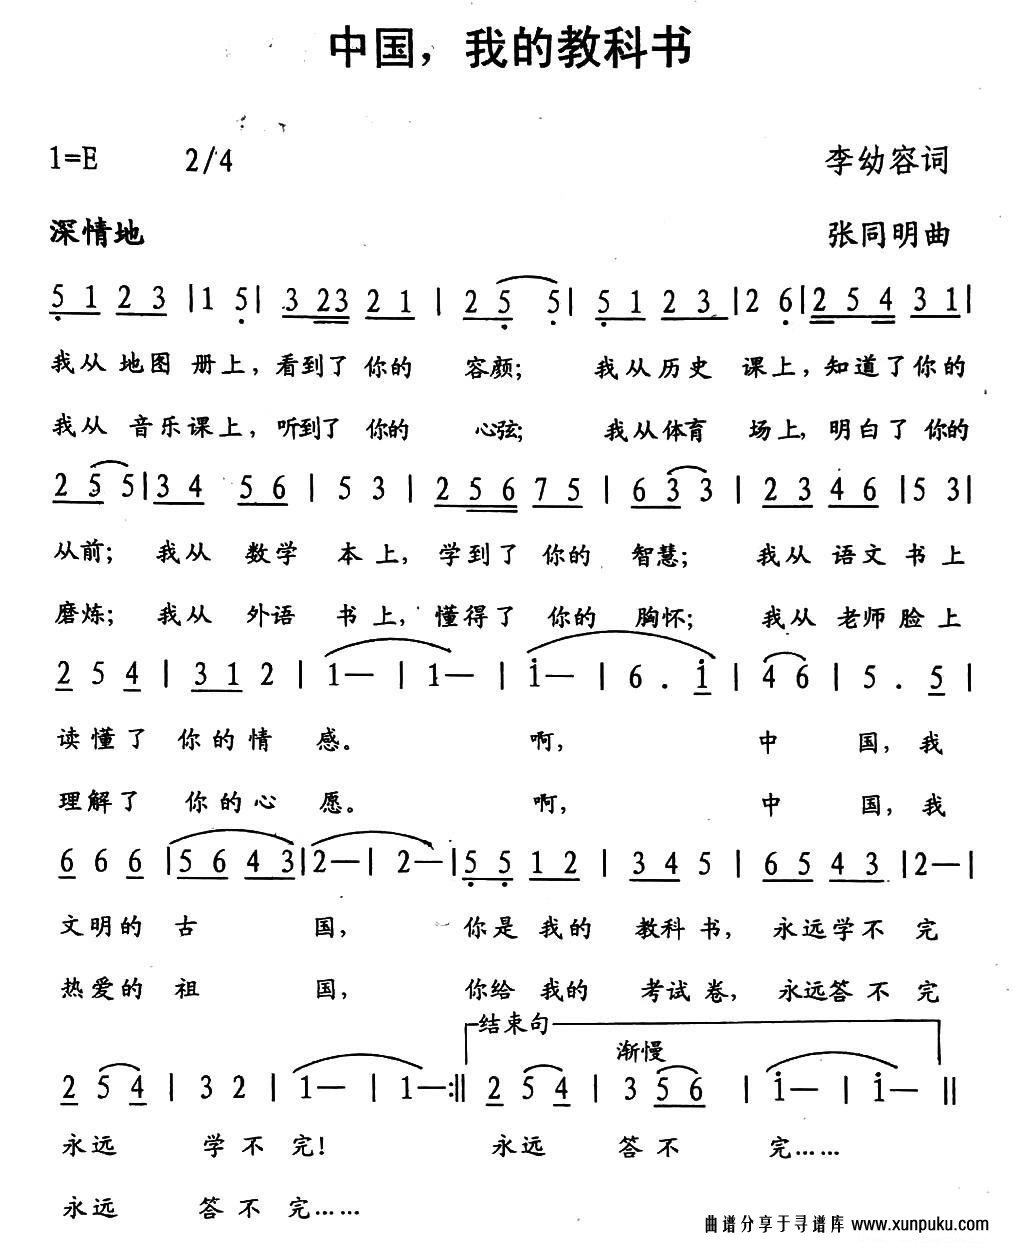 中国，我的教科书
1=E 2/4 李幼容词
深情地 张同明曲
5 1 2 3 |1 5| 3 23 2 1 | 2 5 5| 5 1 2 3 |2 6|2 5 4 3 1|
我从 地图 册上，看到了 你的 容颜； 我从历史 课上，知道了你的
我从 音乐课上，听到了 你的 心弦； 我从体育 场上，明白了 你的
2 5 5|3 4 5 6 | 5 3 | 2 5 6 7 5 | 6 3 3 | 2 3 4 6 |5 3|
从前； 我从 数学 本上，学到了 你的 智慧； 我从 语文 书上
磨炼； 我从 外语 书上，懂得了 你的 胸怀； 我从 老师 脸上
2 5 4 | 3 1 2 | 1— | 1— | i— | 6 . i | 4 6 | 5 . 5 |
读懂了 你的情 感。 啊， 中 国，我
理解了 你的心 愿。 啊， 中 国，我
6 6 6 |5 6 4 3|2—| 2—|5 5 1 2 | 3 4 5 | 6 5 4 3 |2—|
文明的 古 国， 你是 我的 教科 书， 永远学不 完
热爱的 祖 国， 你给 我的 考试 卷， 永远答不 完
结束句
渐慢
2 5 4 | 3 2 | 1— | 1—:‖ 2 5 4 | 3 5 6 | i— | i— ‖
永远 学不 完！ 永远 答不 完……
永远 答不 完……
曲谱分享于寻谱库 www.xunpuku.com